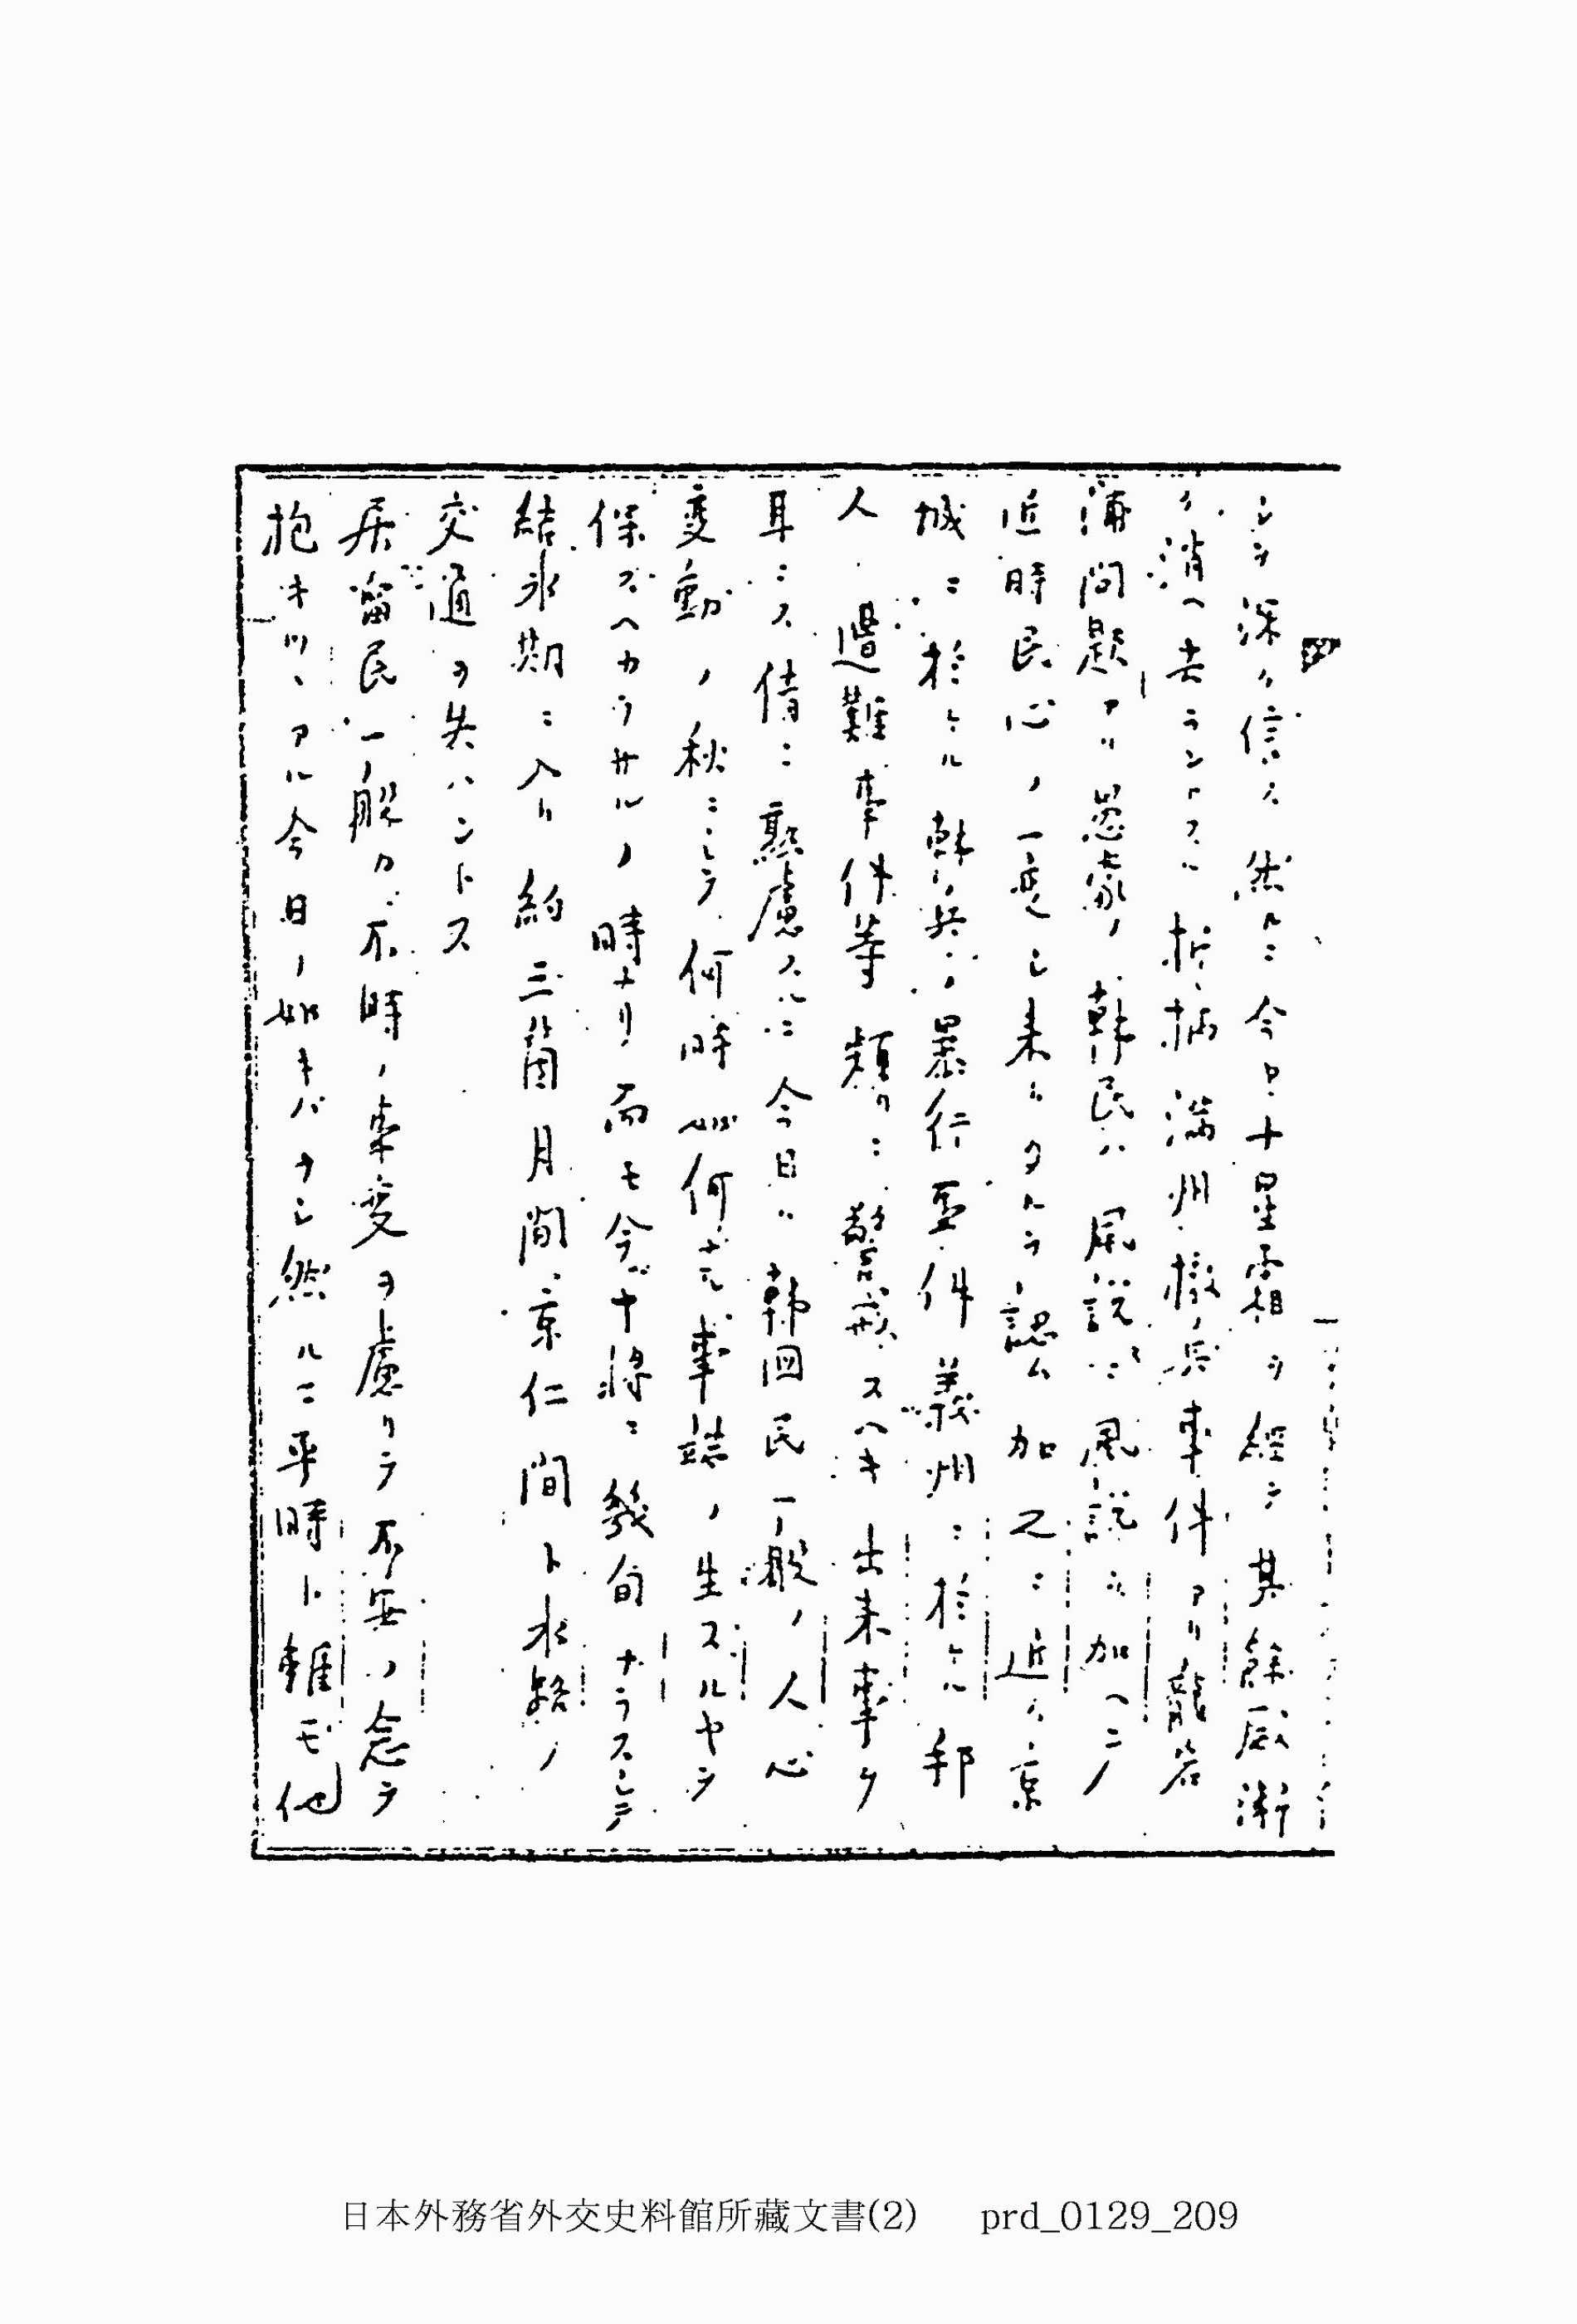 シテ深ク信ス然ルニ今ヤ十星霜ヲ經テ其餘威漸
ク消ヘ去ラントスル折柄滿州撤兵事件アリ龍岩
浦問題アリ愚蒙ノ韓民ハ風説ニ風説ヲ加ヘテ
近時民心ノ一変シ来リタルヲ認ム加之ニ近ク京
城ニ於ケル韓兵ノ暴行事件義州ニ於ケル邦
人遭難事件等頻リニ警戒スヘキ出来事ヲ
耳ニス倩ニ熟慮スルニ今日ハ韓国民一般ノ人心
変動ノ秋ニシテ何時如何ナル事端ノ生スルヤヲ
保スヘカラサルノ時ナリ而モ今ヤ将ニ幾旬ナラスシテ
結氷期ニ入リ約三箇月間京仁間ト水路ノ
交通ヲ失ハントス
居留民一般カ不時ノ事変ヲ慮リテ不安ノ念ヲ
抱キツヽアル今日ノ如キハナシ然ルニ平時ト雖モ他
日本外務省外交史料館所藏文書(2) prd_0129_209